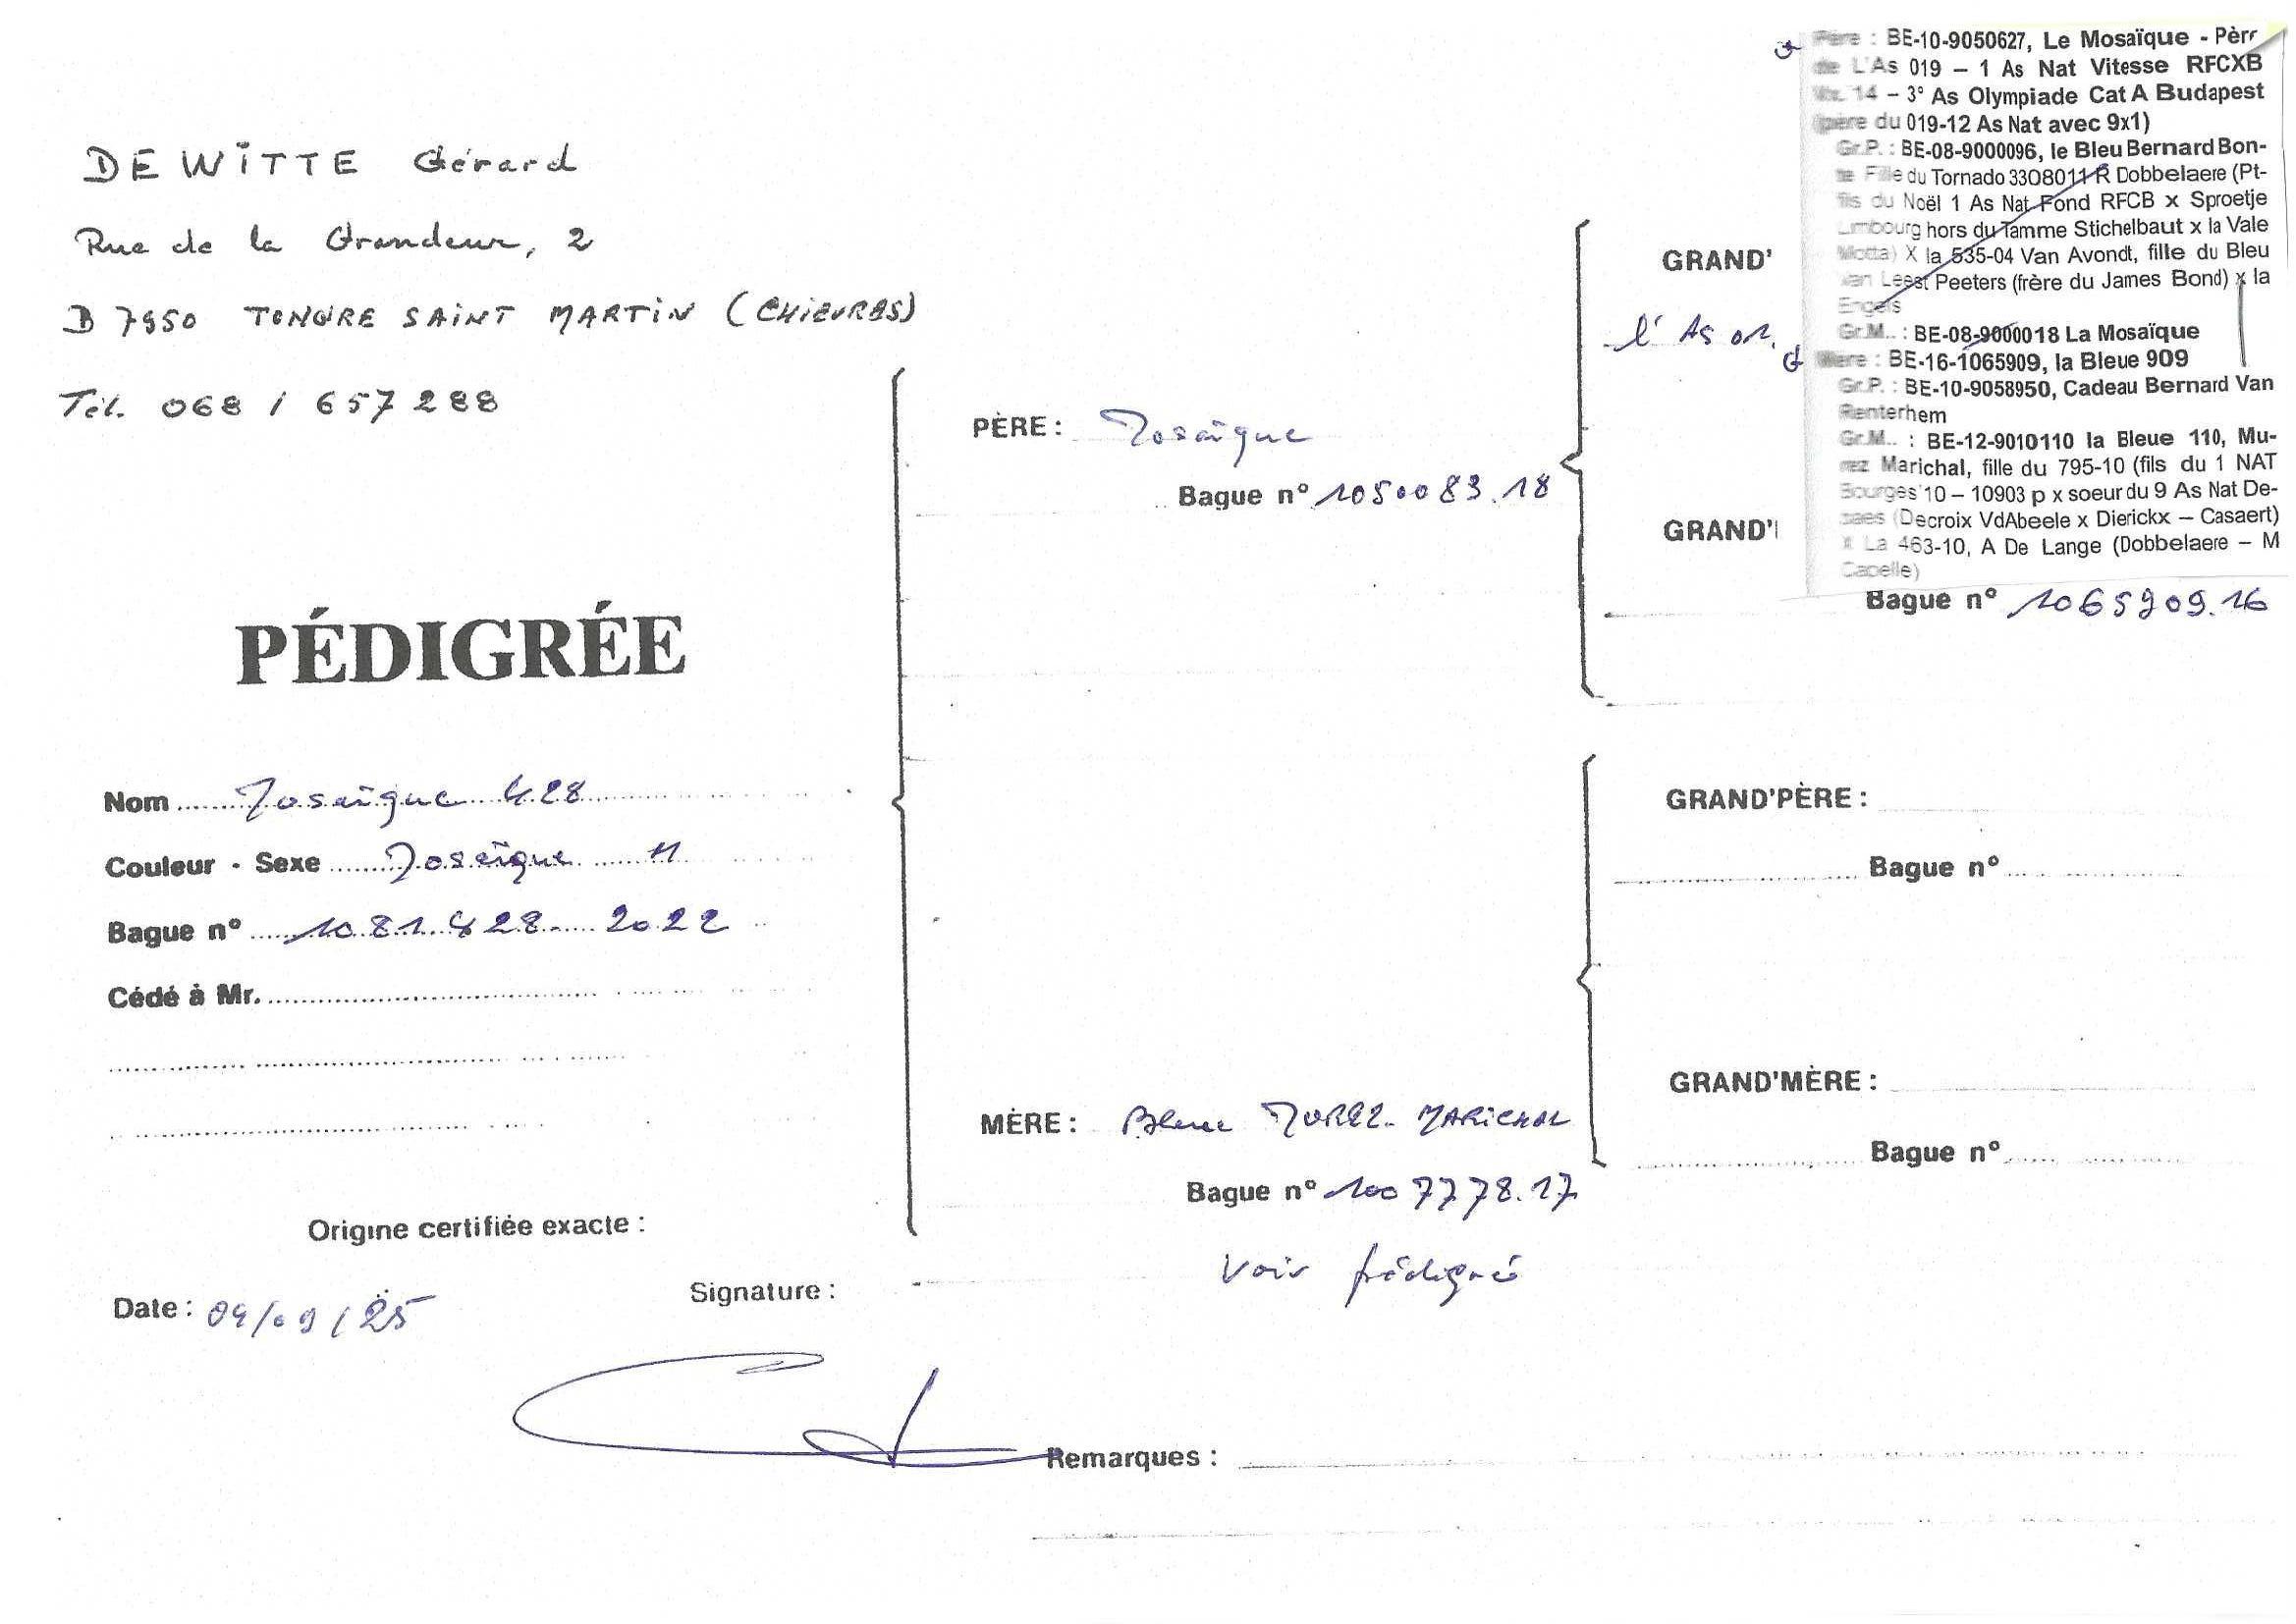 DEWITTE Gérard
Rue de la Grandeur, 2
B 7950 TONGRE SAINT MARTIN (CHIEVRES)
Tél. 068 / 657288
PÉDIGRÉE
Nom Mosaïque 428
Couleur - Sexe Mosaïque M
Bague n° 1081428 2022
Cédé à Mr.
Origine certifiée exacte :
Date : 09/09/25
Signature :
PÈRE : Mosaïque
Bague n° 1050083.18
MÈRE : Bleue MUREZ-MARICHAL
Bague n° 1007778.17
Voir pédigré
GRAND'
l'As
GRAND'
Père : BE-10-9050627, Le Mosaïque - Père
de L'As 019 – 1 As Nat Vitesse RFCXB
14 – 3° As Olympiade Cat A Budapest
(père du 019-12 As Nat avec 9x1)
Gr.P. : BE-08-9000096, le Bleu Bernard Bon-
te Fille du Tornado 3308011 R Dobbelaere (Pt-
fils du Noël 1 As Nat Fond RFCB x Sproetje
Limbourg hors du Tamme Stichelbaut x la Vale
Motta) X la 535-04 Van Avondt, fille du Bleu
Van Leest Peeters (frère du James Bond) x la
Engels
Gr.M.. : BE-08-9000018 La Mosaïque
Mère : BE-16-1065909, la Bleue 909
Gr.P. : BE-10-9058950, Cadeau Bernard Van
Renterhem
Gr.M.. : BE-12-9010110 la Bleue 110, Mu-
rez Marichal, fille du 795-10 (fils du 1 NAT
Bourges'10 – 10903 p x soeur du 9 As Nat De-
saes (Decroix VdAbeele x Dierickx – Casaert)
X La 463-10, A De Lange (Dobbelaere – M
Capelle)
Bague n° 1065909.16
GRAND'PÈRE :
Bague n°
GRAND'MÈRE :
Bague n°
Remarques :